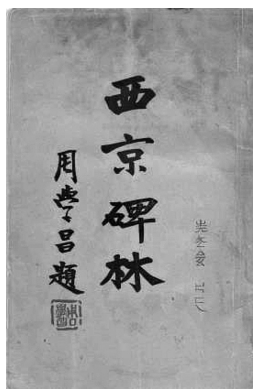 西京碑林
周學昌題